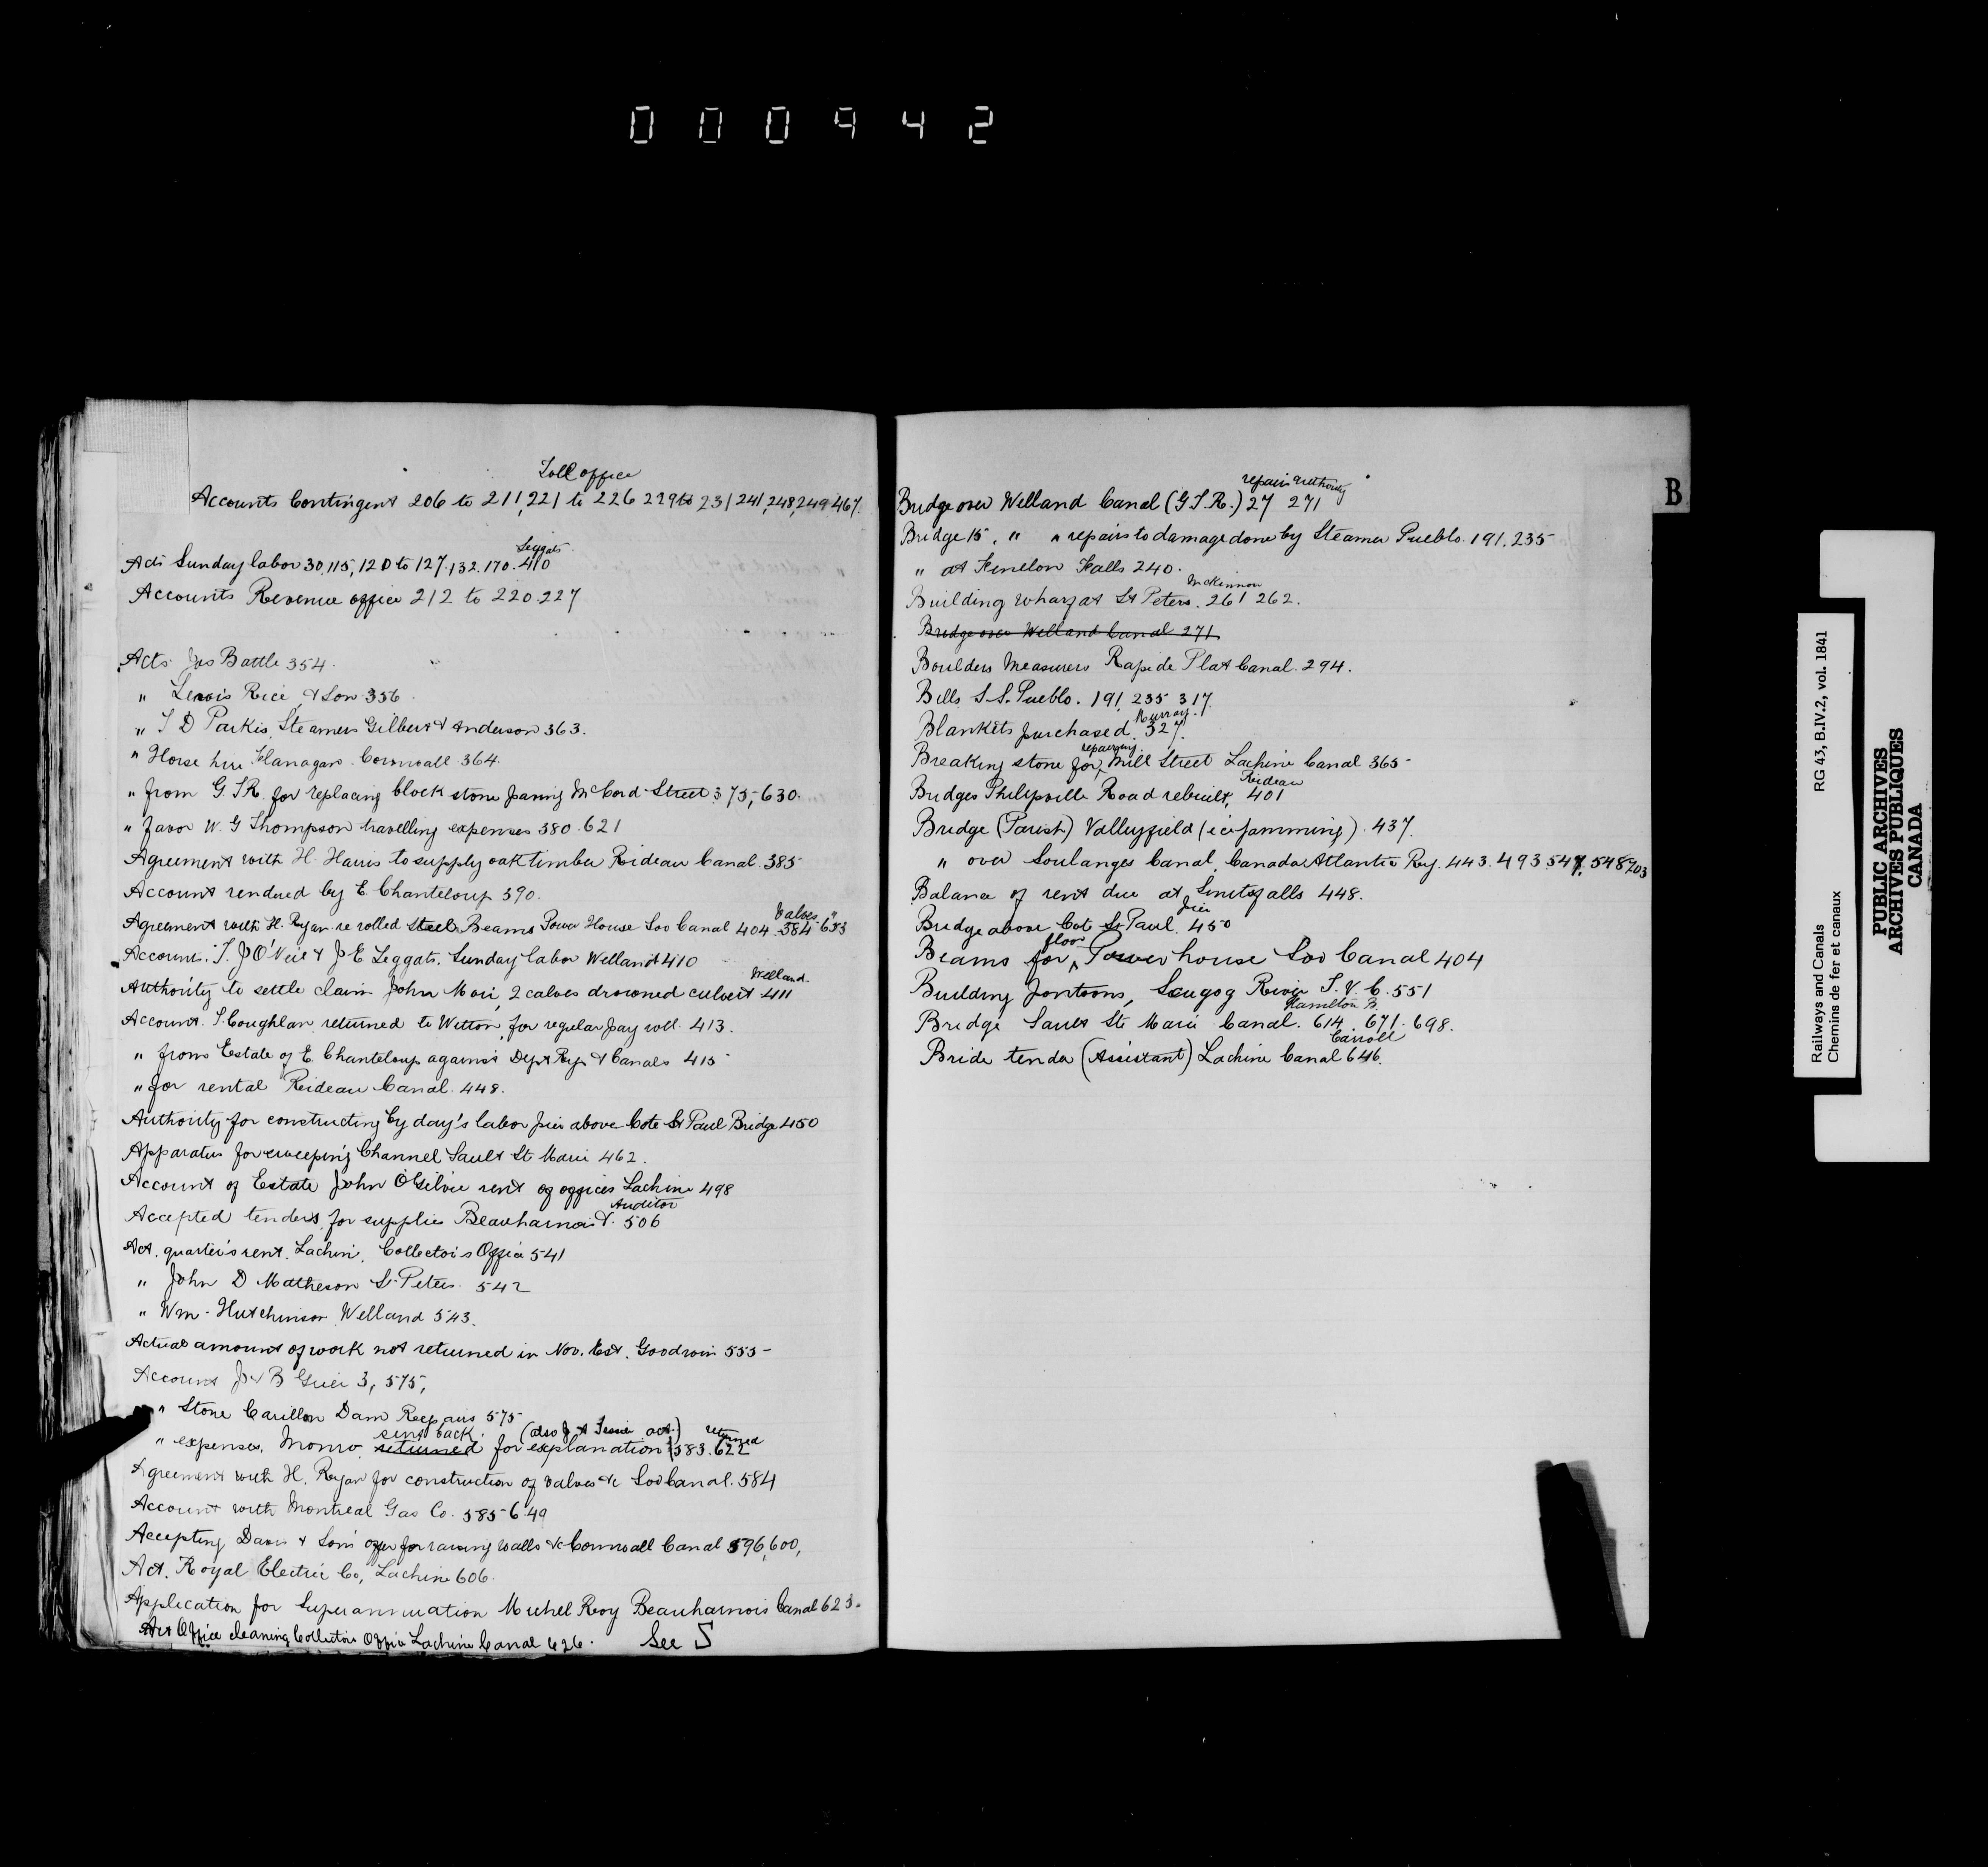 000942
Toll office
Accounts Contingent 206 to 211, 221 to 226 229 to 231 241, 248, 249 467.
Leggats
Acts Sunday labor 30, 115, 120 to 127. 132. 170. 410
Accounts Revenue office 212 to 220. 227
Acts Jas Battle 354.
" Lewis Rice & Son 356
" T D Parkis, Steamers Gilbert & Anderson 363.
" Horse hire Flanagan. Cornwall 364.
" from G.T.R. for replacing block stone paving McCord Street 375, 630.
" favor W. G Thompson travelling expenses 380. 621
Agreement with H. Harris to supply oak timber Rideau Canal. 385
Account rendered by E. Chanteloup 390.
Valves "
Agreement with H. Ryan re rolled Steel Beams Power House Soo Canal 404. 584 653
Account. T. J O'Neil & J E Leggats. Sunday labor Welland 410
Welland
Authority to settle claim John 2 calves drowned culvert 411
Account. T. Coughlan returned to Witton, for regular pay roll. 413.
" from Estate of E. Chanteloup against Dept Rys & Canals 415
" for rental Rideau Canal. 448.
Authority for constructing by day's labor pier above Cote St Paul Bridge 450
Apparatus for sweeping Channel Sault Ste Marie 462.
Account of Estate John O'Gilvie rent of offices Lachine 498
Auditor
Accepted tenders for supplies Beauharnois &. 506
Act. quarter's rent. Lachine. Collector's Office 541
" John D Matheson St. Peters. 542
" Wm. Hutchinson Welland 543.
Actual amount of work not returned in Nov. Est. Goodwin 553
Account J & B Grier 3, 575,
" Stone Carillon Dam Repairs 575
sent back. (also J A Tessier act.) returned
" expenses, Monro returned for explanation 583. 622
Agreement with H. Ryan for construction of valves &c Soo Canal. 584
Account with Montreal Gas Co. 585 649
Accepting Davis & Sons offer for raising walls &c Cornwall Canal 596, 600,
Act. Royal Electric Co, Lachine 606.
Application for Superannuation Michel Roy Beauharnois Canal 623.
Act Office cleaning Collectors Office Lachine Canal 626. See S
B
repairs authority
Bridge over Welland Canal (G.T.R.) 27 271
Bridge 15, " " repairs to damage done by Steamer Pueblo. 191. 235
" at Fenelon Falls 240.
McKinnon
Building wharf at St Peters. 261 262.
Bridge over Welland Canal 271
Boulders Measurers Rapide Plat Canal. 294.
Bills S.S. Pueblo. 191, 235 317.
Murray.
Blankets purchased. 327.
repairing
Breaking stone for Mill Street Lachine Canal 365
Rideau
Bridges Philipsville Road rebuilt, 401
Bridge (Parish) Valleyfield (ice jamming). 437.
" over Soulanges Canal, Canada Atlantic Ry. 443. 493. 547, 548 703
Balance of rent due at Smiths falls 448.
pier
Bridge above Cote St Paul. 450
floor
Beams for Power house Soo Canal 404
Building pontoons, Scugog River T. V. C. 551
Hamilton B.
Bridge Sault Ste Marie Canal. 614. 671. 698.
Carroll
Bride tender (Assistant) Lachine Canal 646.
Railways and Canals
Chemins de fer et canaux
RG 43, B.IV.2, vol. 1841
PUBLIC ARCHIVES
ARCHIVES PUBLIQUES
CANADA